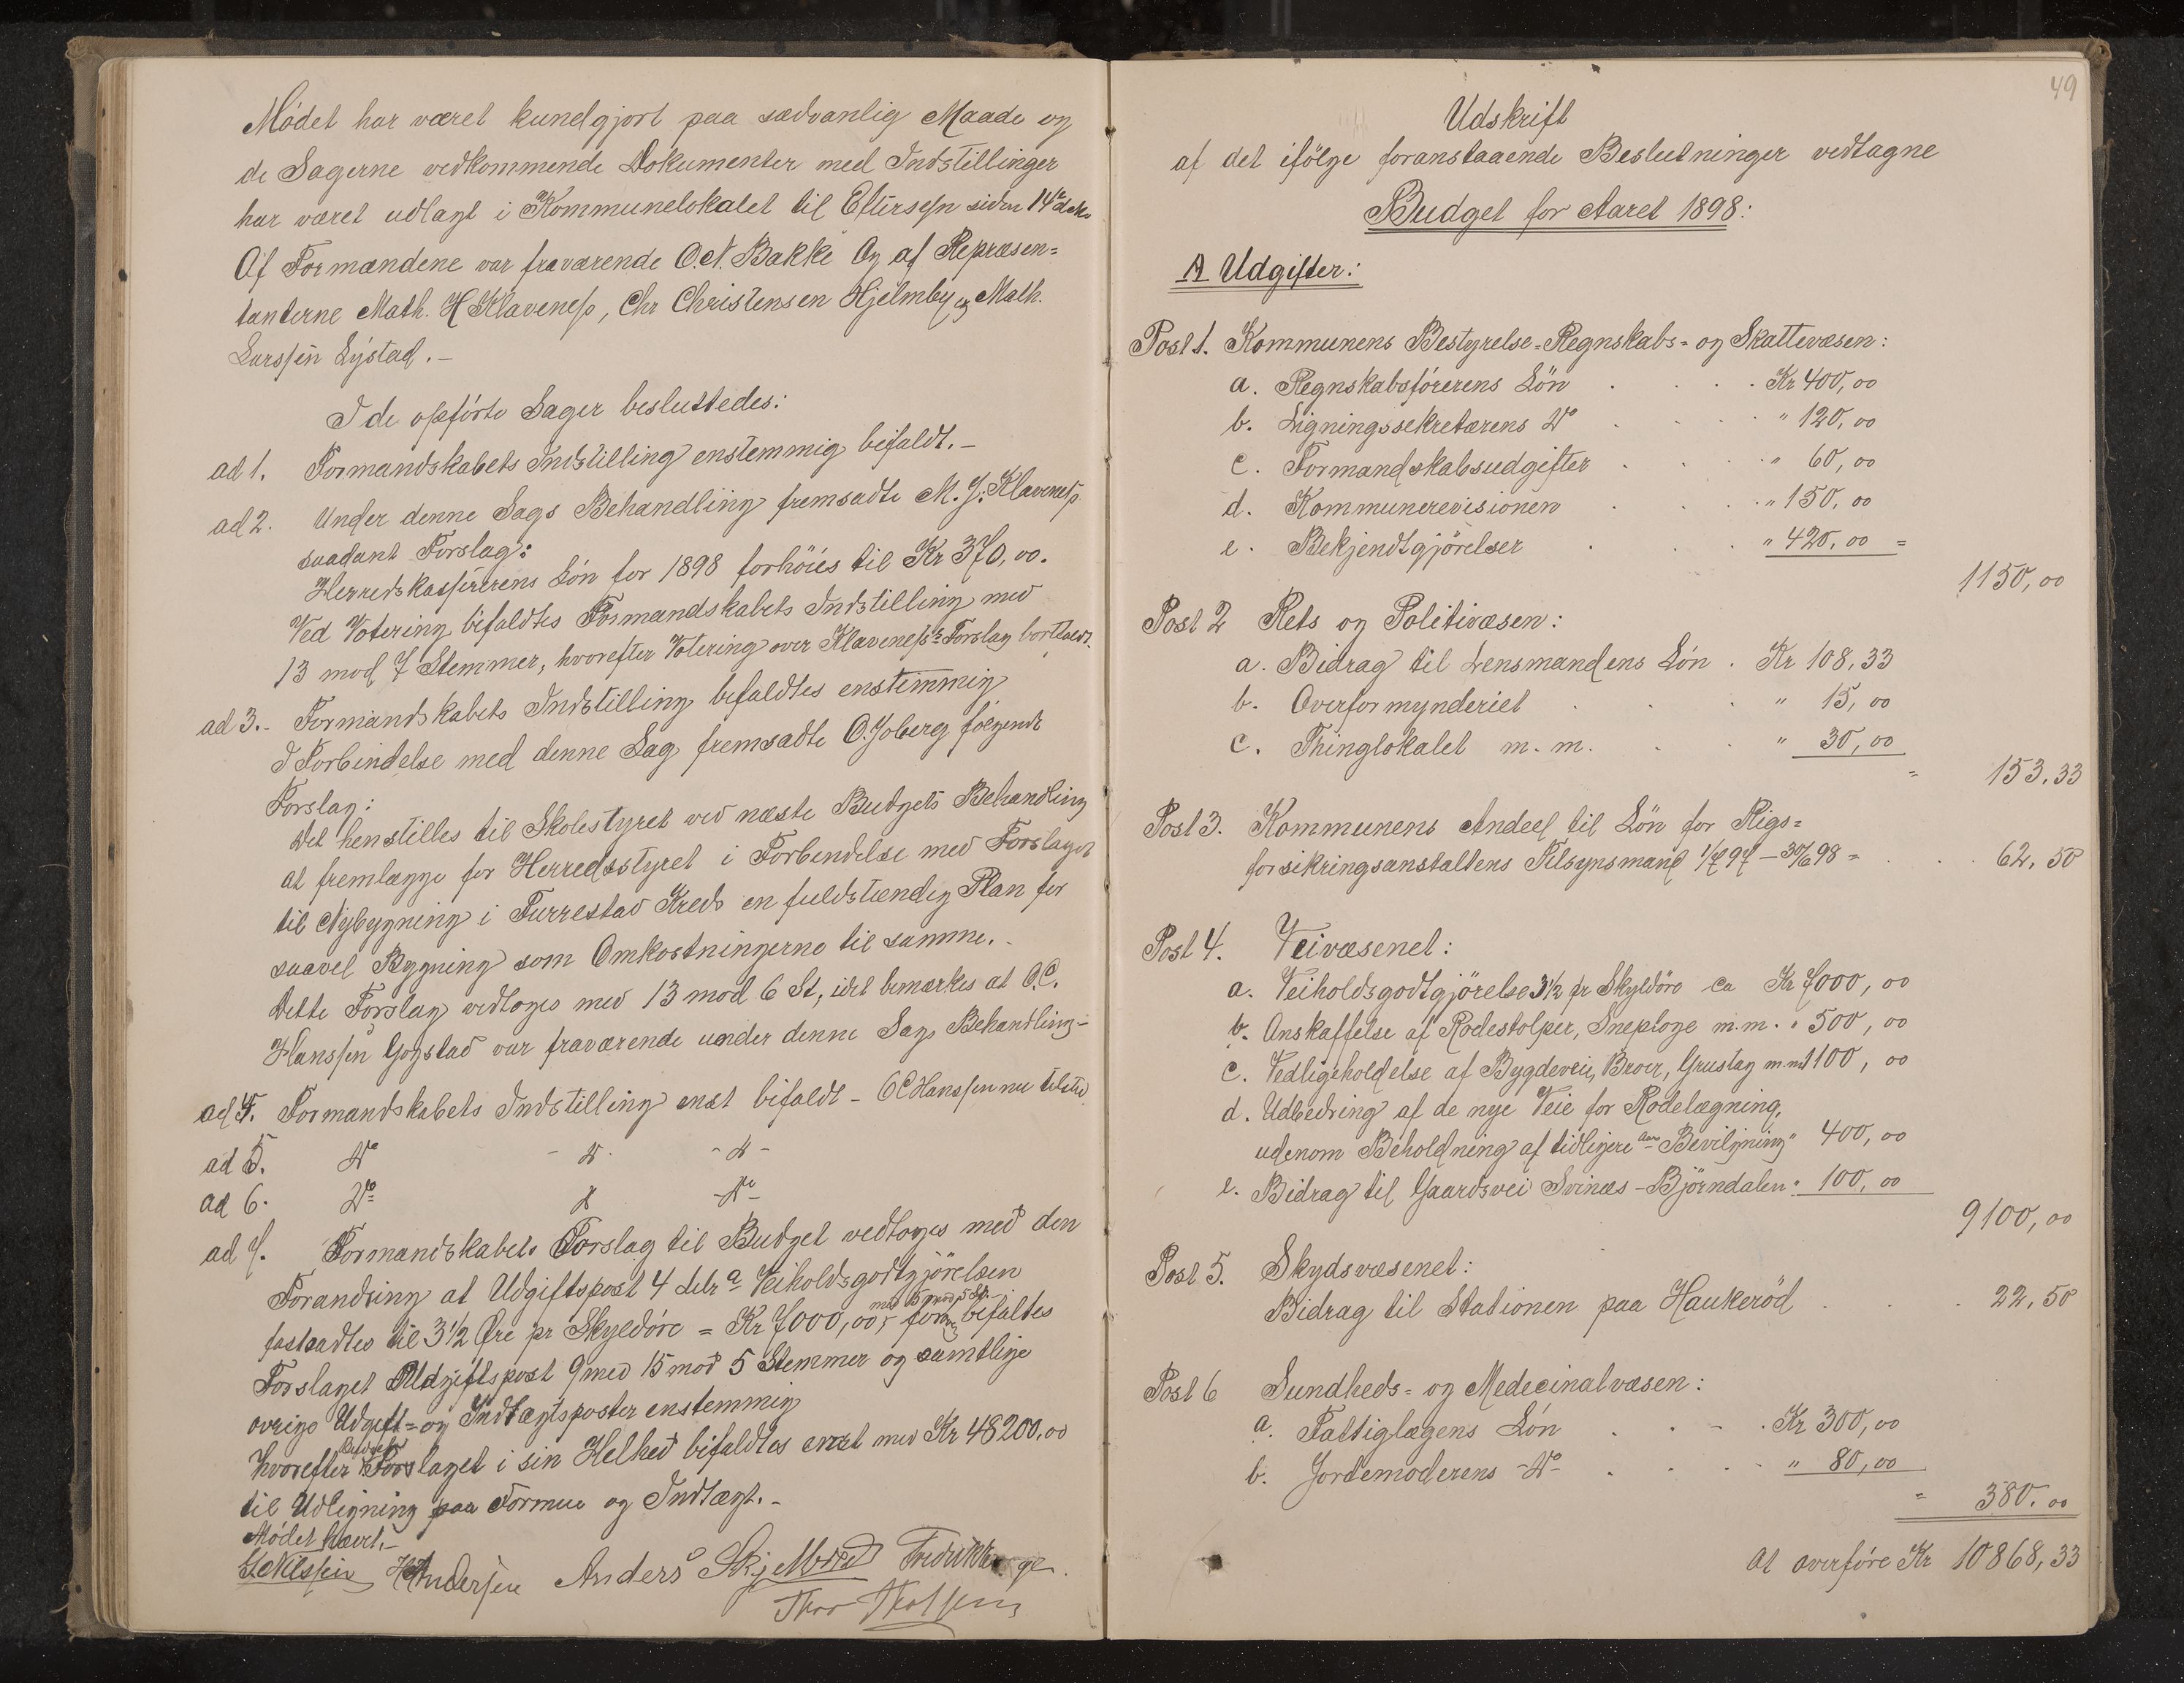 Mödet har været kundgjort paa sædvanlig Maade og
de Sagerne vedkommende Dokumenter med Indstillinger
har været udlagt i Kommunelokalet til Eftersyn siden 14de ds.
Af Formændene var fraværende O. N. Bakke Og af Repræsen=
tanterne Math. H Klaveness, Chr Christensen Hjelmby og Math.
Larssen Lystad. –
I de opförte Sager besluttedes:
ad 1. Formandskabets Indstilling enstemmig bifaldt. –
ad 2. Under denne Sags Behandling fremsadte M. J. Klaveness
saadant Forslag:
Herredskassererens Lön for 1898 forhöies til Kr 370,00.
Ved Votering bifaldtes Formandskabets Indstilling med
13 mod 7 Stemmer, hvorefter Votering over Klaveness's Forslag bortfaldt.
ad 3. – Formandskabets Indstilling bifaldtes enstemmig
I Forbindelse med denne Sag fremsadte O. Joberg fölgende
Forslag:
Det henstilles til Skolestyret ved næste Budgets Behandling
at fremlægge for Herredsstyret i Forbindelse med Forslaget
til Nybygning i Furrestad Kreds en fuldstændig Plan for
saavel Bygning som Omkostningerne til samme. –
Dette Forslag vedtoges med 13 mod 6 St, idet bemærkes at O.C.
Hanssen Gogstad var fraværende under denne Sags Behandling –
ad 4. Formandskabets Indstilling enst bifaldt – OC Hanssen nu tilsted
ad 5. Do – D – – D –
ad 6. Do D – Do –
ad 7. Formandskabets Forslag til Budget vedtoges med den
Forandring at Udgiftspost 4 Litr a Veiholdsgodtgjörelsen
med 15 mod 5 St.
fastsadtes til 3 1/2 Öre pr Skyldöre = Kr 7000,00, bifaldtes
Forslaget Udgiftspost 9 med 15 mod 5 Stemmer og samtlige
övrige Udgift= og Indtægtsposter enstemmig
Budget
hvorefter Forslaget i sin Helhed bifaldtes enst med Kr 48200,00
til Udligning paa Formue og Indtægt. –
Mödet hævet. –
HAndersen Anders Skjelbred Fredrikk
Thor Thorssen
49
Udskrift
af det ifölge foranstaaende Beslutninger vedtagne
Budget for Aaret 1898:
A Udgifter:
Post 1. Kommunens Bestyrelse= Regnskabs= og Skattevæsen:
a. Regnskabsförerens Lön . . . Kr 400,00
b. Ligningssekretærens Do . . . " 120,00
c. Formandskabsudgifter . . . " 60,00
d. Kommunerevisionen . . . " 150,00
e. Bekjendtgjörelser . . . " 420,00 =
1150,00
Post 2 Rets og Politivæsen:
a. Bidrag til Lensmandens Lön . Kr 108,33
b. Overformynderiet . . . " 15,00
c. Thinglokalet m. m. . . " 30,00
= 153,33
Post 3. Kommunens Andeel til Lön for Rigs=
forsikringsanstaltens Tilsynsmand 1/7 97 – 30/6 98 = . . 62,50
Post 4. Veivæsenet:
a. Veiholdsgodtgjörelse 3 1/2 pr Skyldöre ca Kr 7000,00
b. Anskaffelse af Rodestolper, Sneploge m.m. " 500,00
c. Vedligeholdelse af Bygdeveie, Broer, Grustag m.m. 1100,00
d. Udbedring af de nye Veie for Rodelægning,
udenom Beholdning af tidligere Aars Bevilgning " 400,00
e. Bidrag til Gaardsvei Svinæs – Björndalen " 100,00
9100,00
Post 5. Skydsvæsenet:
Bidrag til Stationen paa Haukeröd . . . 22,50
Post 6 Sundheds= og Medecinalvæsen:
a. Fattiglægens Lön . . . Kr 300,00
b. Jordemoderens – Do – . . . " 80,00
= 380,00
At overföre Kr 10868,33